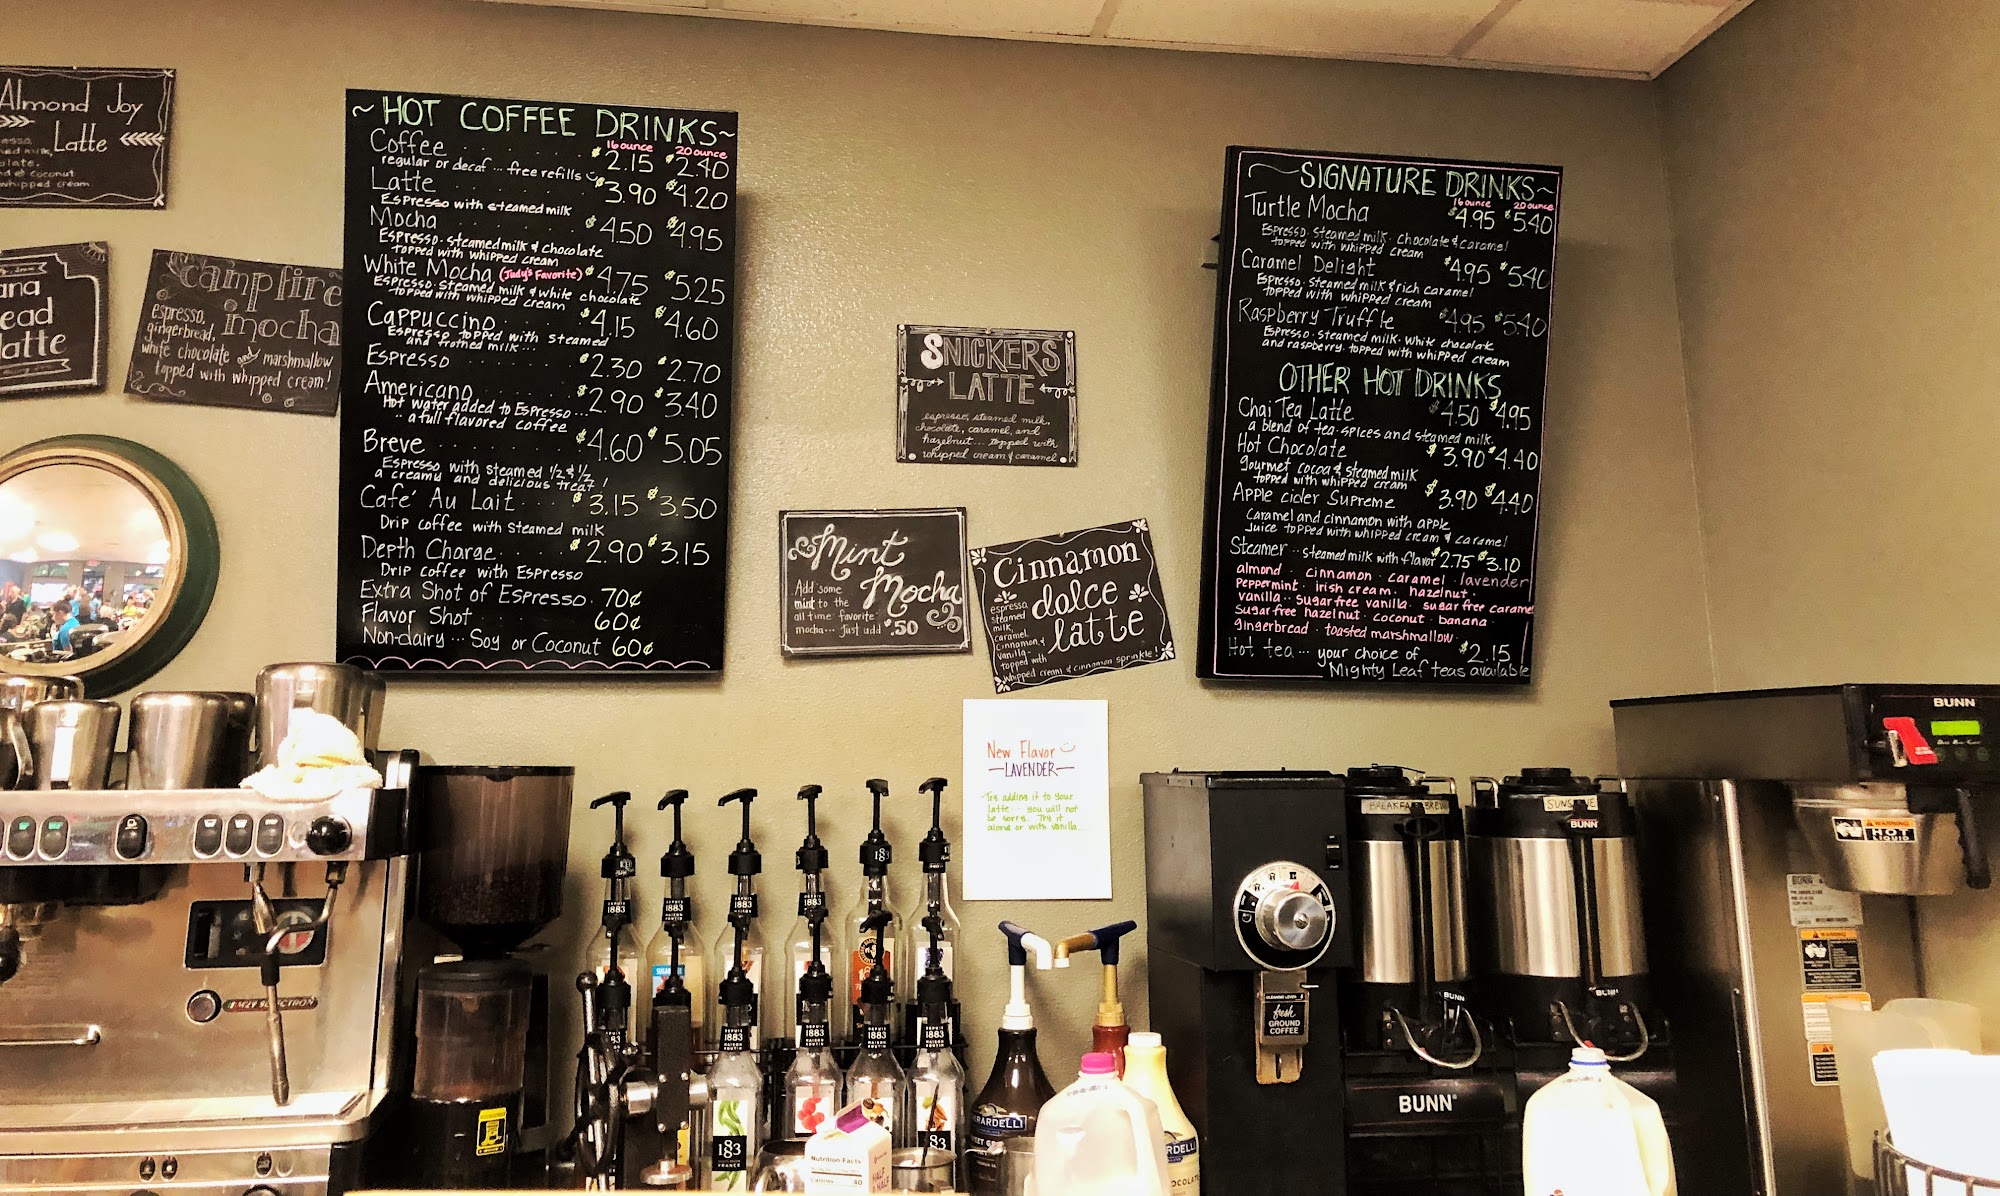 Almond Joy
Latte
coconut
whipped cream
ana
ead
latte
campfire
mocha
espresso,
gingerbread,
white chocolate and marshmallow
topped with whipped cream!
~HOT COFFEE DRINKS~
16 ounce 20 ounce
Coffee . . . . . . . $2.15 $2.40
regular or decaf ... free refills
Latte . . . . . . . $3.90 $4.20
Espresso with steamed milk
Mocha . . . . . . $4.50 $4.95
Espresso · steamed milk & chocolate
topped with whipped cream
White Mocha (Judy's Favorite) $4.75 $5.25
Espresso · steamed milk & white chocolate
topped with whipped cream
Cappuccino . . . . $4.15 $4.60
Espresso topped with steamed
and frothed milk...
Espresso . . . . . $2.30 $2.70
Americano . . . . $2.90 $3.40
Hot water added to Espresso...
.. a full flavored coffee
Breve . . . . . . $4.60 $5.05
Espresso with steamed 1/2 & 1/2
a creamy and delicious treat!
Café Au Lait . . . $3.15 $3.50
Drip coffee with steamed milk
Depth Charge . . . $2.90 $3.15
Drip coffee with Espresso
Extra Shot of Espresso . 70¢
Flavor Shot 60¢
Non-dairy ... Soy or Coconut 60¢
SNICKERS
LATTE
espresso, steamed milk,
chocolate, caramel, and
hazelnut... topped with
whipped cream & caramel
Mint
Mocha
Add some
mint to the
all time favorite
mocha... just add $.50
Cinnamon
dolce
latte
espresso,
steamed
milk,
caramel,
cinnamon, &
vanilla-
topped with
whipped cream & cinnamon sprinkle!
~SIGNATURE DRINKS~
16 ounce 20 ounce
Turtle Mocha $4.95 $5.40
Espresso · steamed milk · chocolate & caramel
topped with whipped cream
Caramel Delight $4.95 $5.40
Espresso · steamed milk & rich caramel
topped with whipped cream
Raspberry Truffle $4.95 $5.40
Espresso · steamed milk · white chocolate
and raspberry topped with whipped cream
OTHER HOT DRINKS
Chai Tea Latte $4.50 $4.95
a blend of tea · spices and steamed milk.
Hot Chocolate $3.90 $4.40
gourmet cocoa & steamed milk
topped with whipped cream
Apple cider Supreme $3.90 $4.40
Caramel and cinnamon with apple
juice topped with whipped cream & caramel
Steamer .. steamed milk with flavor $2.75 $3.10
almond · cinnamon · caramel · lavender
peppermint · irish cream · hazelnut ·
vanilla · sugar free vanilla · sugar free caramel
sugar free hazelnut · coconut · banana ·
gingerbread · toasted marshmallow ·
Hot tea ... your choice of $2.15
Mighty Leaf teas available
New Flavor
—LAVENDER—
Try adding it to your
latte ... you will not
be sorry. Try it
alone or with vanilla...
BREAKFAST BREW
SUNSHINE
BUNN
BUNN
BUNN
BUNN
BUNN
BUNN
WARNING
HOT
LIQUID
WARNING
fresh
GROUND
COFFEE
M29 SELECTRON
1883
1883
1883
1883
1883
FRANCE
SUGAR FREE
GHIRARDELLI
Nutrition Facts
Calories 40
HALF